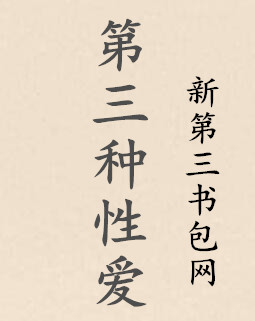 第三种性爱
新第三书包网